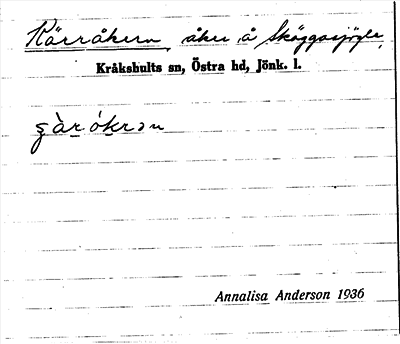 Kärråkern, åker å Skäggasjögle,
Kråkshults sn, Östra hd, Jönk. l.
Annalisa Anderson 1936